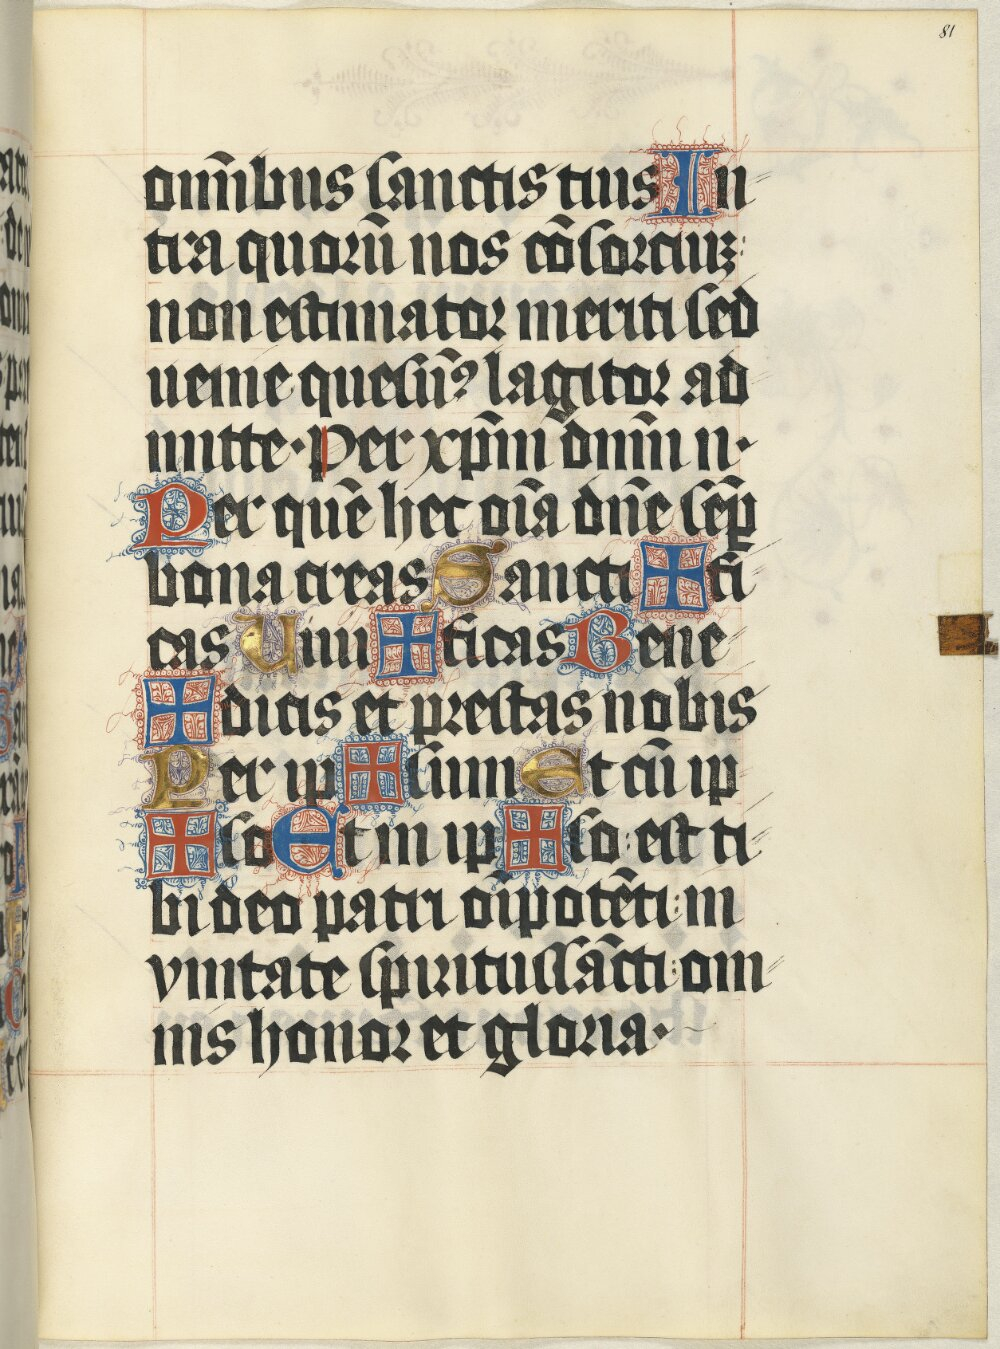 81
om̄ibus sanctis tuis In
tra quorū nos cōsorciuʒ
non estimator meriti sed
uenie quesum̄ꝰ lagitor ad
mitte · Per xp̄m dn̄m n ·
Per quē hec oīa dn̄e semꝑ
bona creas Sancti ✠ fi
cas Uiui ✠ ficas Bene
✠ dicis et prestas nobis
Per ip ✠ sum Et cū ip
✠ so Et in ip ✠ so : est ti
bi deo patri oīpotēti : in
vnitate spiritussācti : om
nis honor et gloria ·